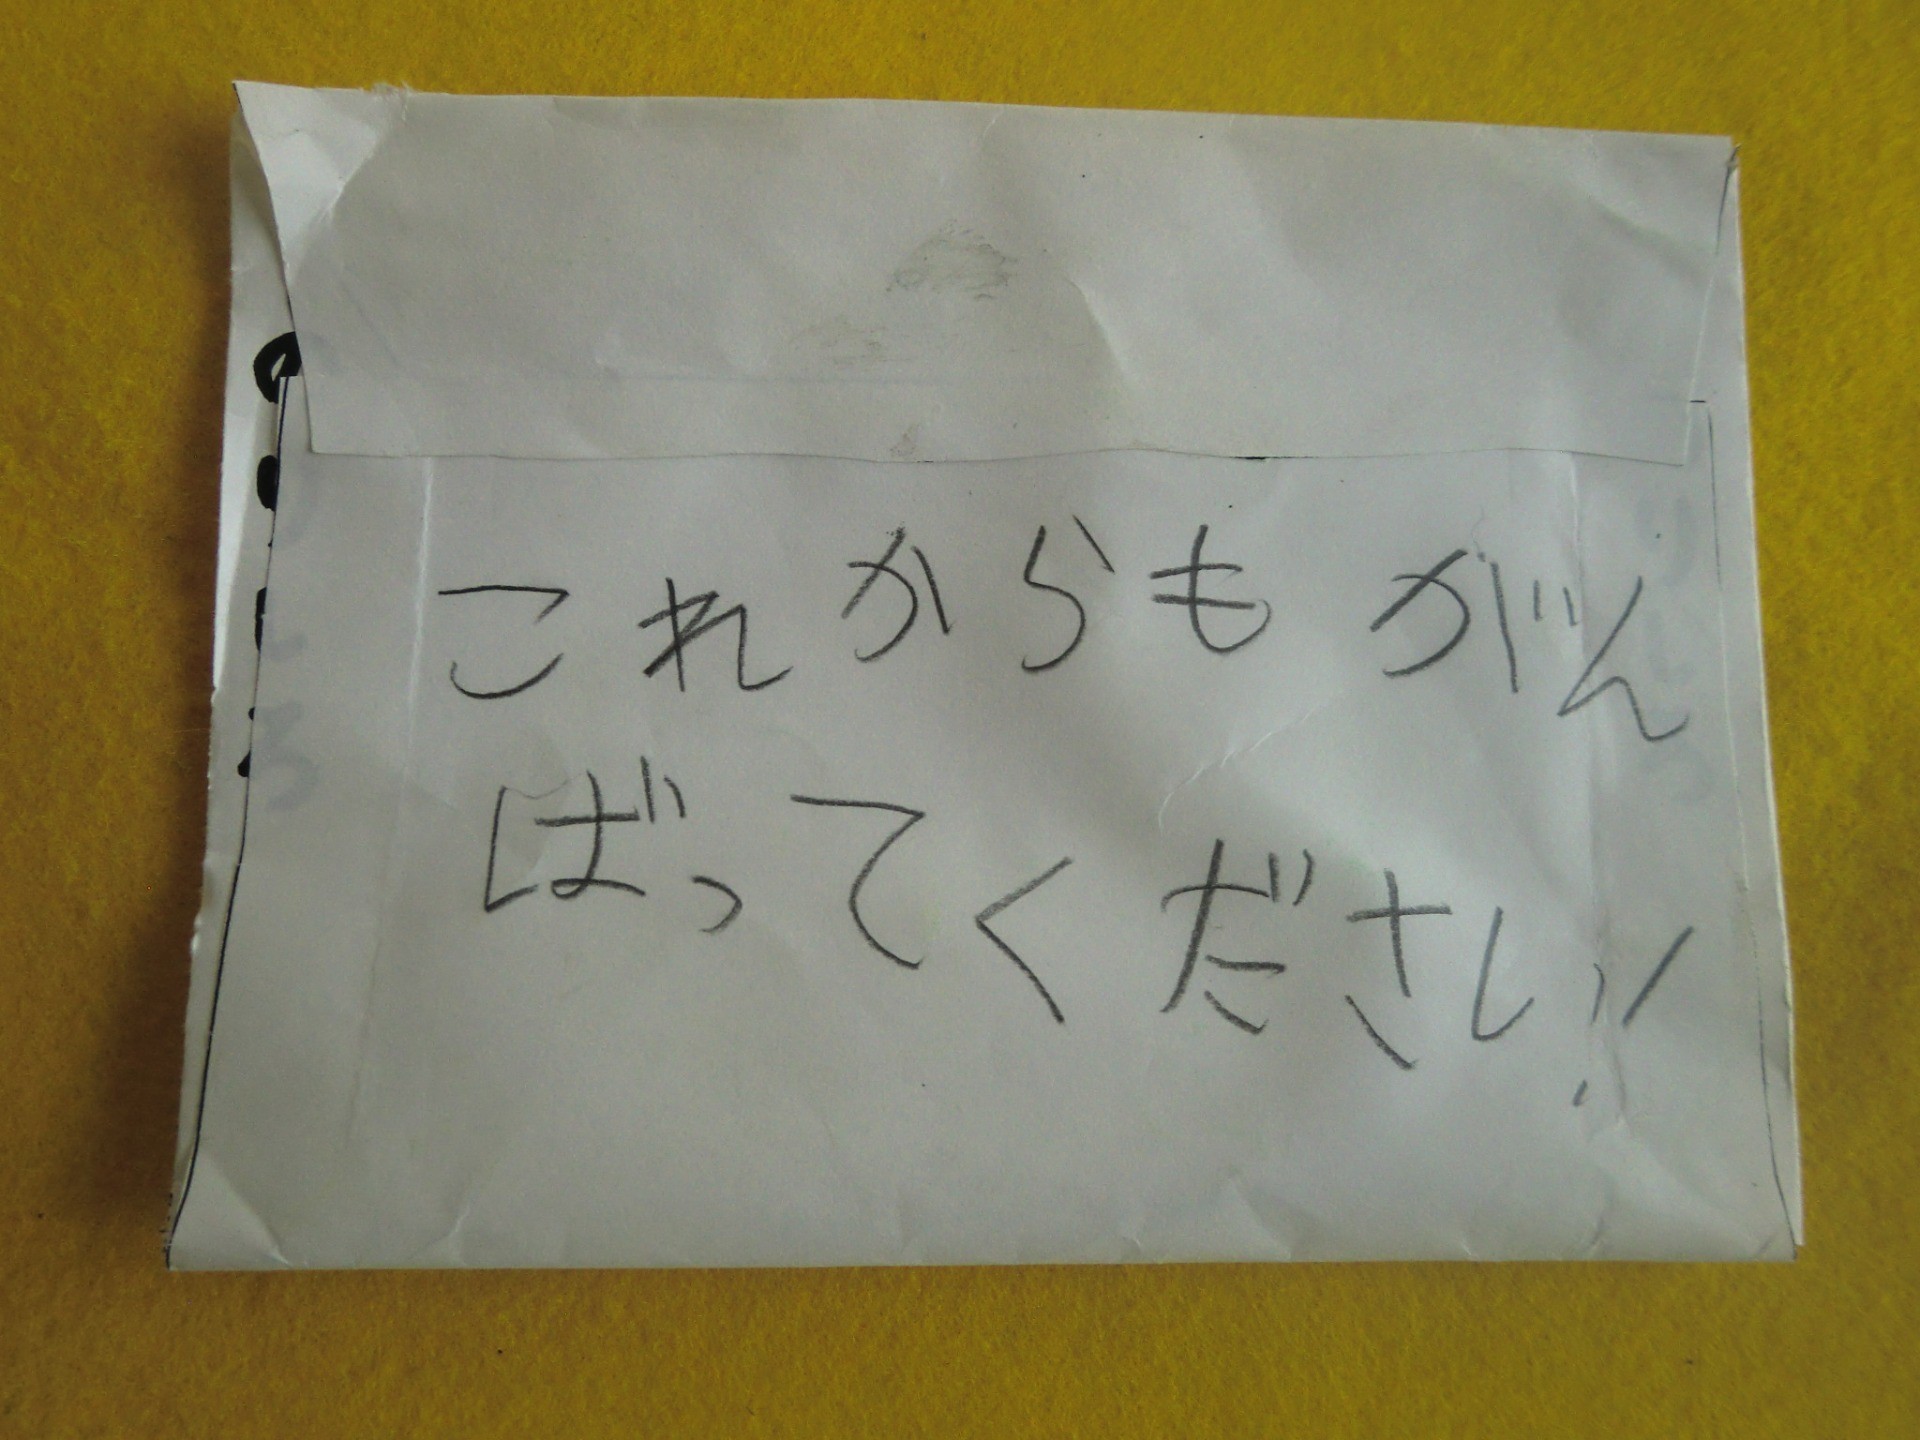 これからもがん
ばってください!